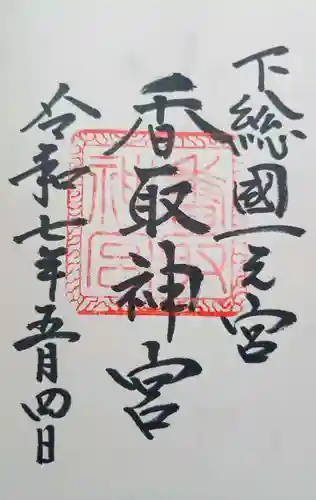 下総國一之宮
香取神宮
令和七年五月四日